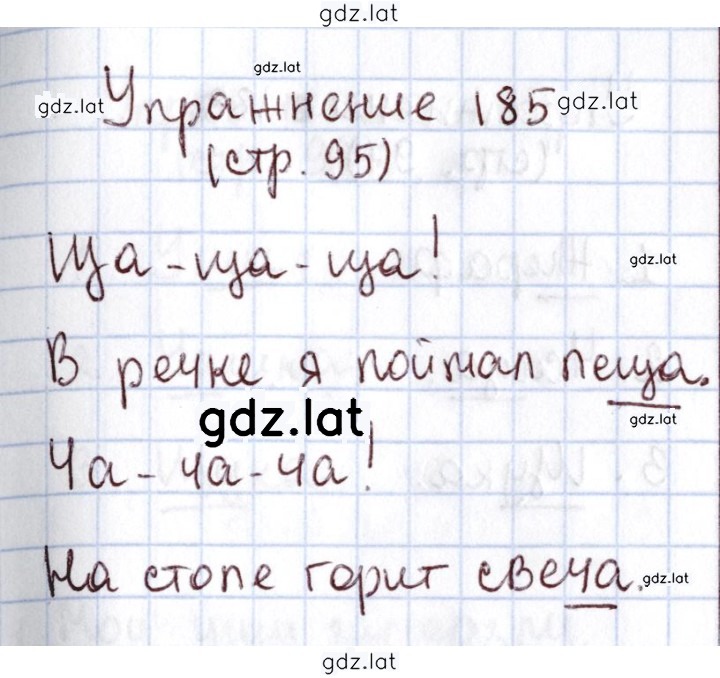 gdz.lat
gdz.lat
gdz.lat Упражнение 185 gdz.lat
(стр. 95)
Ща - ща - ща! gdz.lat
В речке я поймал леща.
gdz.lat gdz.lat
Ча - ча - ча!
На столе горит свеча. gdz.lat
gdz.lat